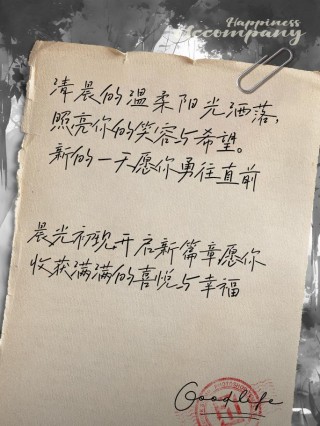 Happiness
Accompany
清晨的温柔阳光洒落,
照亮你的笑容与希望。
新的一天愿你勇往直前
晨光初现开启新篇章愿你
收获满满的喜悦与幸福
Good life